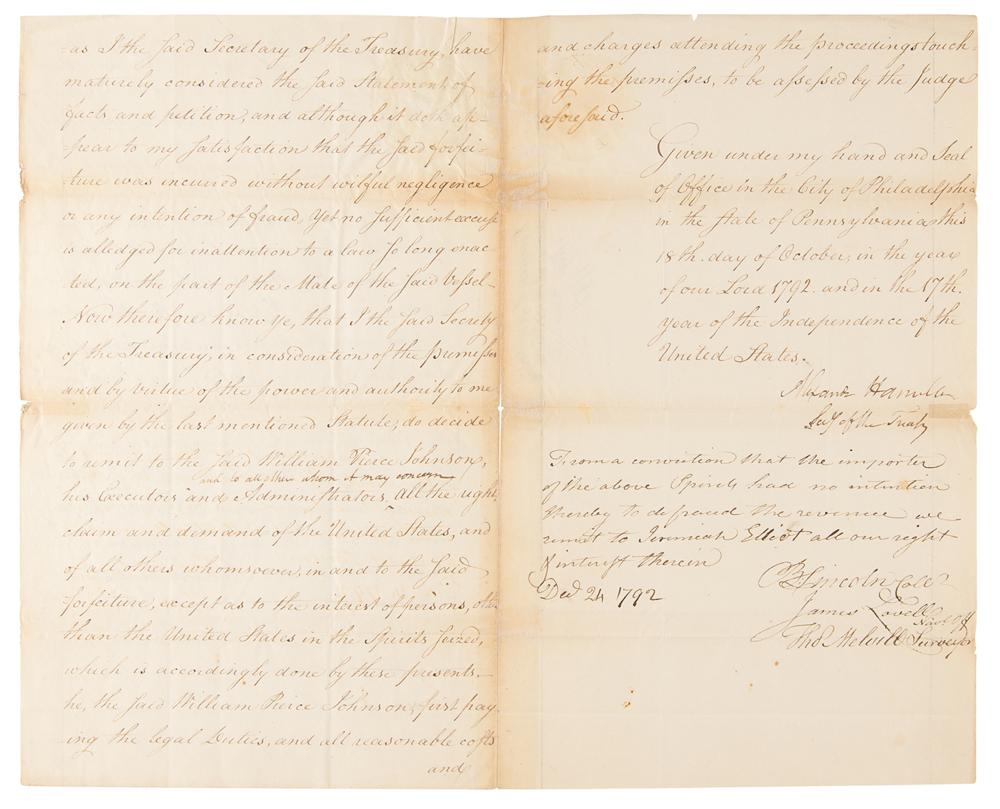 =as I the said Secretary of the Treasury, have
maturely considered the said Statement of
facts and petition, and although it doth ap=
=pear to my satisfaction that the said forfei=
=ture was incurred without wilful negligence
or any intention of fraud, Yet no sufficient excuse
is alledged for inattention to a law so long enac=
=ted, on the part of the Mate of the said Vessel—
Now therefore know ye, that I the said Secrety
of the Treasury, in consideration of the premisses
and by virtue of the power and authority to me
given by the last mentioned Statute, do decide
to remit to the said William Pierce Johnson,
and to all other whom it may concern
his Executors and Administrators, ^ all the right,
claim and demand of the United States, and
of all others whomsoever, in and to the said
forfeiture, accept as to the interest of persons, other
than the United States in the Spirits seized,
which is accordingly done by these presents.—
he, the said William Pierce Johnson, first pay
=ing the legal Duties, and all reasonable costs
and
and charges attending the proceedings touch=
=ing the premisses, to be assessed by the Judge
aforesaid.
Given under my hand and Seal
of Office in the City of Philadelphia
in the State of Pennsylvania this
18th. day of October, in the year
of our Lord 1792. and in the 17th.
year of the Independence of the
United States.
Alexander Hamilton
Secy of the Treasy
From a conviction that the importer
of the above Spirits had no intention
thereby to defraud the revenue we
remit to Jeremiah Elliot all our right
& interest therein
Decr 24 1792
B Lincoln Collr
James Lovell Navl Off
Thos Melvill Surveyor